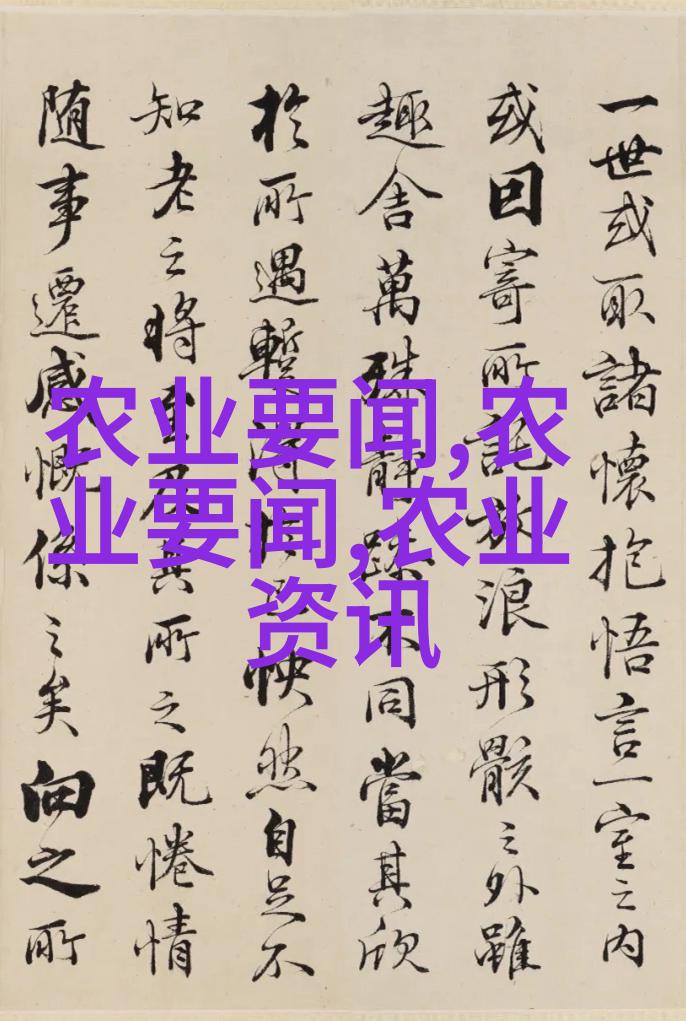 一世或取諸懷抱悟言一室之内
或因寄所託放浪形骸之外雖
趣舍萬殊静躁不同當其欣
於所遇暫得於己怏然自足不
知老之将至及其所之既惓情
随事遷感慨係之矣向之所
农业要闻,农
业要闻,农业
资讯